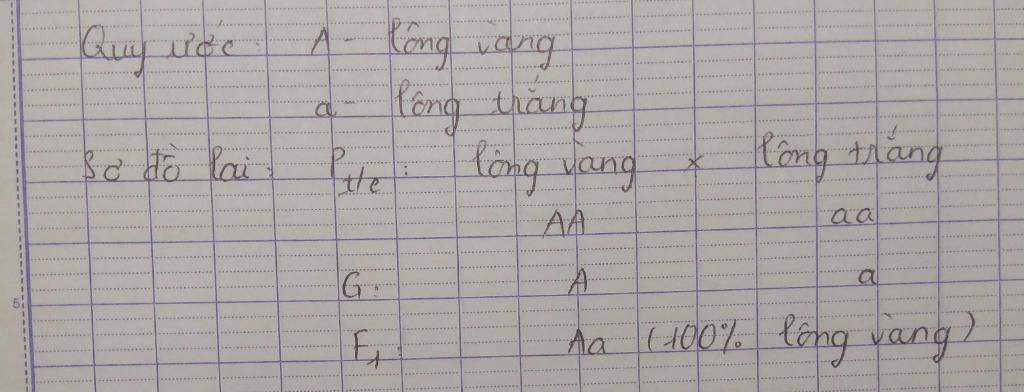 Quy ước: A - lông vàng
a - lông trắng
Sơ đồ lai: P t/c : lông vàng x lông trắng
AA aa
G: A a
F1: Aa (100% lông vàng)
5